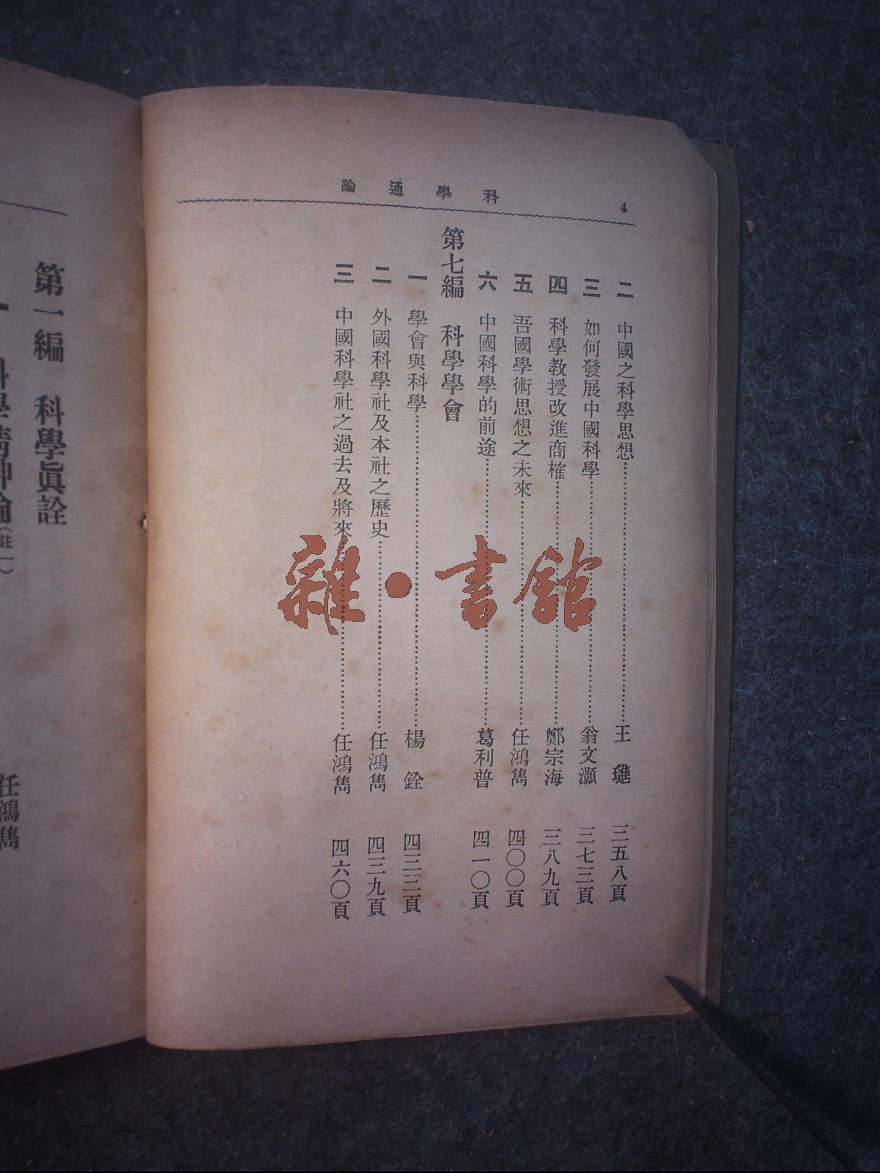 科學通論
4
二 中國之科學思想……王 璡 三五八頁
三 如何發展中國科學……翁文灝 三七三頁
四 科學教授改進商榷……鄭宗海 三八九頁
五 吾國學術思想之未來……任鴻雋 四〇〇頁
六 中國科學的前途……葛利普 四一〇頁
第七編 科學學會
一 學會與科學……楊 銓 四三二頁
二 外國科學社及本社之歷史……任鴻雋 四三九頁
三 中國科學社之過去及將來……任鴻雋 四六〇頁
第一編 科學眞詮
一 科學精神論(註一)
任鴻雋
雜·書館